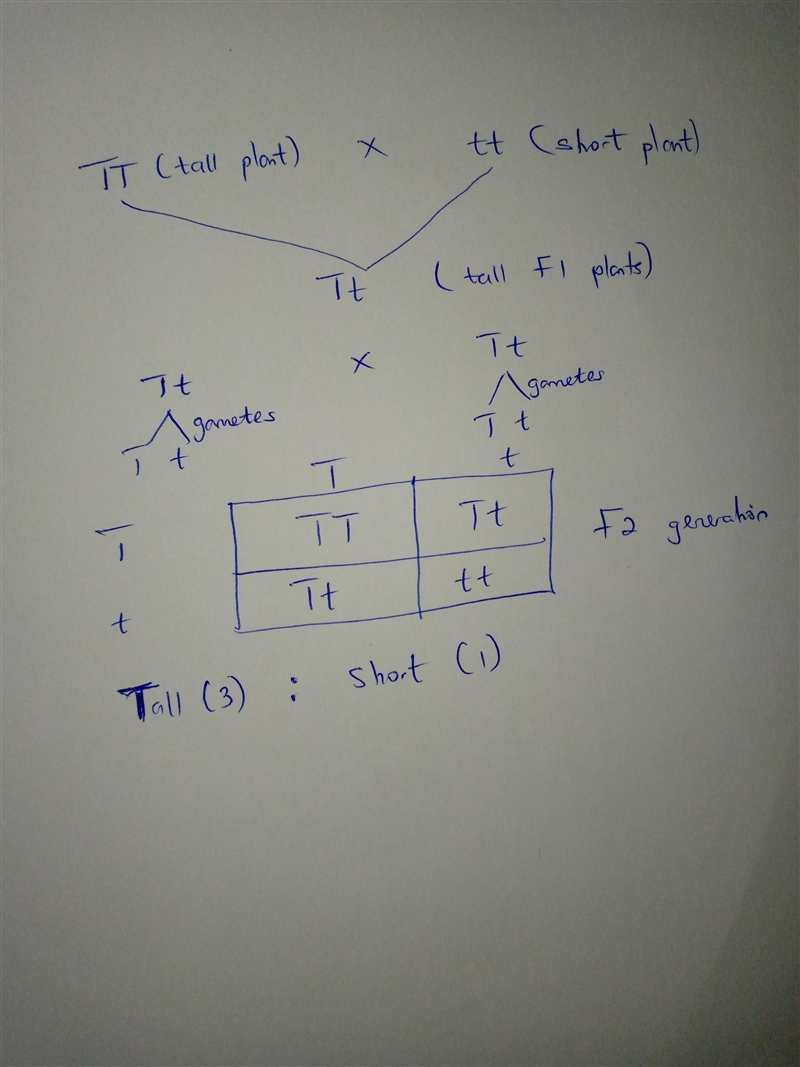 TT (tall plant) x tt (short plant)
Tt (tall F1 plants)
Tt x Tt
gametes gametes
T t T t
T t
T TT Tt F2 generation
t Tt tt
Tall (3) : Short (1)